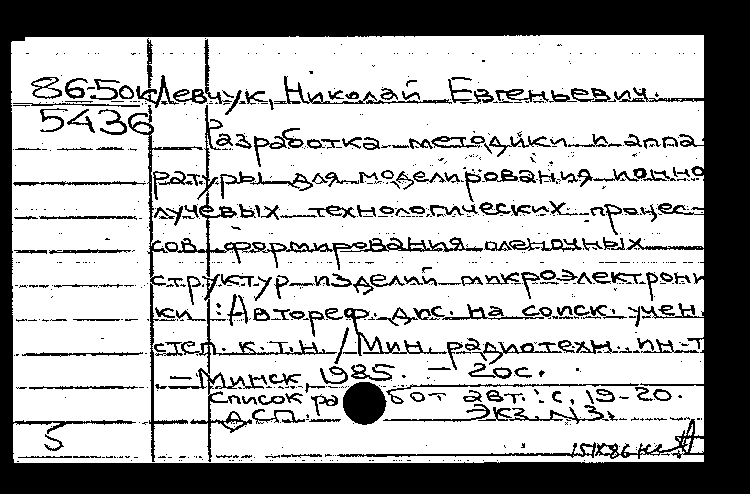 86-50к Левчук, Николай Евгеньевич.
5436
Разработка методики и аппа
ратуры для моделирования ионно
лучевых технологических процес-
сов формирования пленочных
структур изделий микроэлектрони
ки : Автореф. дис. на соиск. учен.
степ. к.т.н. / Мин. радиотехн. ин-т
.—Минск, 1985. — 20с.
Список работ авт.: с. 19-20.
ДСП. Экз. N3.
5